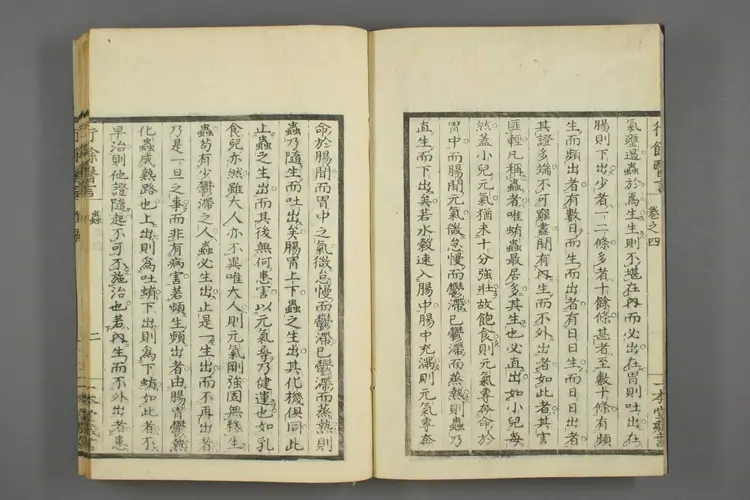 行餘醫言
卷之四
氣壅遏蟲於焉生生則不堪在內而必出在胃則吐出在
腸則下出少者一二條多者十餘條甚者至數十條有頻
生而頻出者有數日而生而出者有日日生而日日出者
其證多端不可窮盡間有內生而不外出者如此者其害
匪輕凡稱蟲者唯蛕蟲最居多其生也必直出如小兒每
然蓋小兒元氣猶未十分強壯故飽食則元氣專奔命於
胃中而腸間元氣微怠慢而鬱滯而蒸熱則蟲乃
直生而下出矣若水穀速入腸中腸中充滿則元氣專奔
一本堂藏書
命於腸間而胃中之氣微怠慢而鬱滯已鬱滯而蒸熱則
蟲乃隨生而吐出矣腸胃上下蟲之生出其化機俱同此
止蟲之生出而其後無何患害以元氣尋乃健運也如乳
食兒亦然雖大人亦不異唯大人則元氣剛強固無緣生
蟲苟有少鬱滯之人蟲必生出止是一生出而不再出者
乃是一旦之事而非有病害若頻生頻出者由腸胃鬱熱
化蟲成熟路也上出則為吐蛕下出則為下蛕如此者不
早治則他證隨起不可不施治也若內生而不外出者患
行餘醫言
蟲
二
一本堂藏書